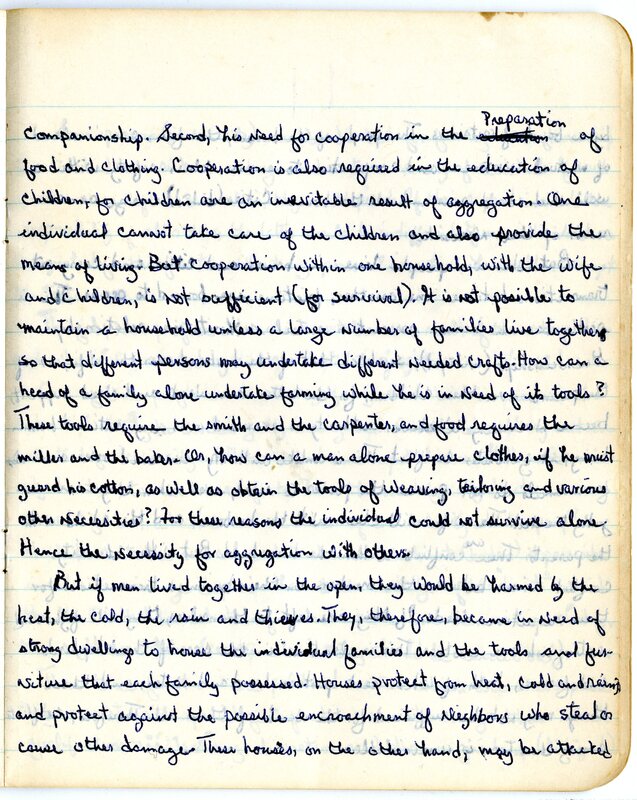 Preparation
Companionship. Second, his need for cooperation in the education of
food and clothing. Cooperation is also required in the education of
children, for children are an inevitable result of aggregation. One
individual cannot take care of the children and also provide the
means of living. But cooperation within one household, with the wife
and children, is not sufficient (for survival). It is not possible to
maintain a household unless a large number of families live together
so that different persons may undertake different needed crafts. How can a
head of a family alone undertake farming while he is in need of its tools?
These tools require the smith and the carpenter, and food requires the
miller and the baker. Or, how can a man alone prepare clothes, if he must
guard his cotton, as well as obtain the tools of weaving, tailoring and various
other necessities? For these reasons the individual could not survive alone.
Hence the necessity for aggregation with others.
But if men lived together in the open, they would be harmed by the
heat, the cold, the rain and thieves. They, therefore, became in need of
strong dwellings to house the individual families and the tools and fur-
niture that each family possessed. Houses protect from heat, cold and rain,
and protect against the possible encroachment of neighbors who steal or
cause other damage. These houses, on the other hand, may be attacked